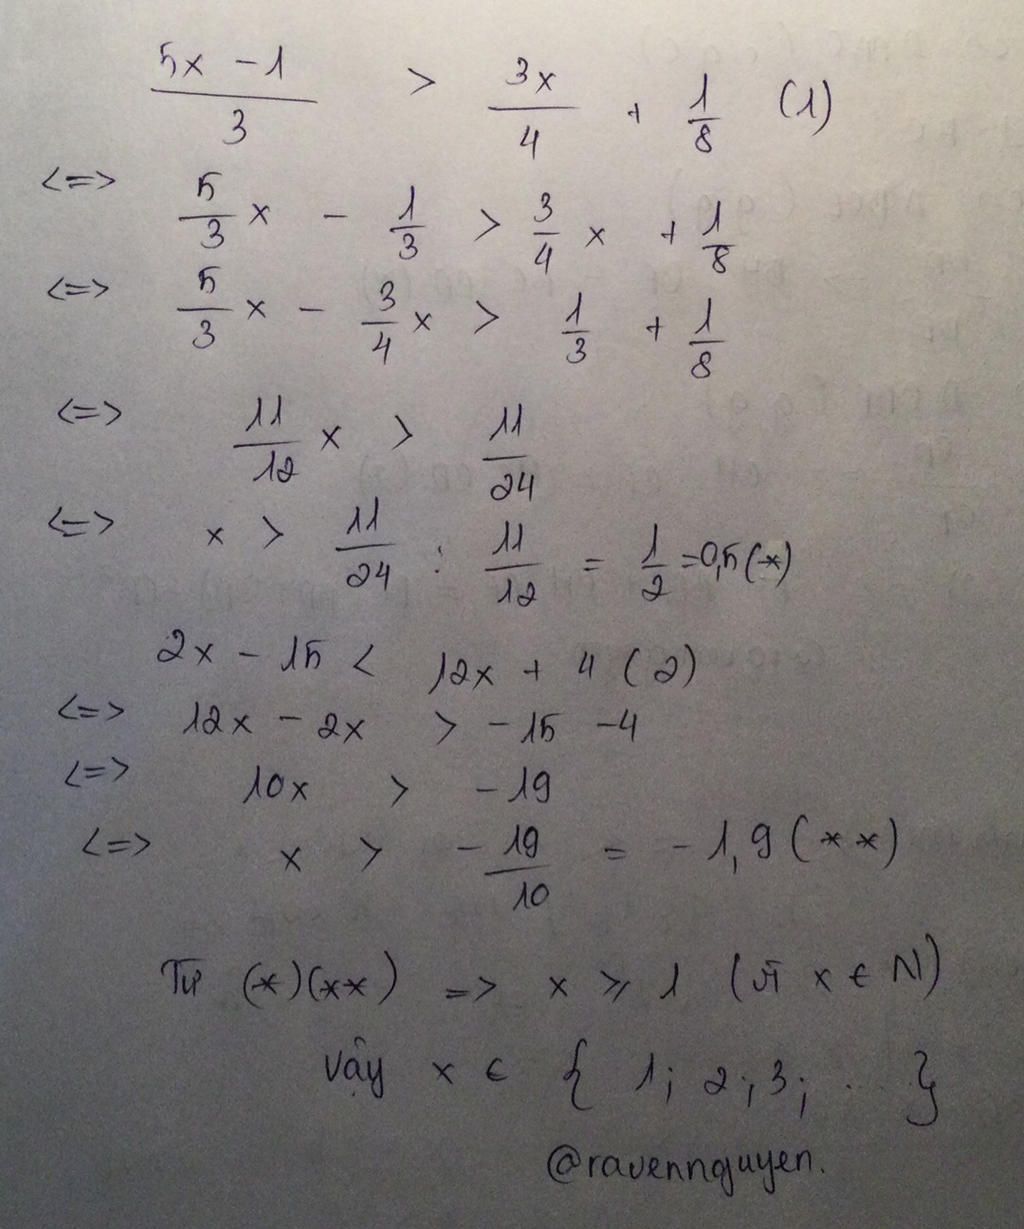 5x - 1 / 3 > 3x / 4 + 1/8 (1)
<=> 5/3 x - 1/3 > 3/4 x + 1/8
<=> 5/3 x - 3/4 x > 1/3 + 1/8
<=> 11/12 x > 11/24
<=> x > 11/24 : 11/12 = 1/2 = 0,5 (*)
2x - 15 < 12x + 4 (2)
<=> 12x - 2x > -15 -4
<=> 10x > -19
<=> x > -19/10 = -1,9 (**)
Từ (*)(**) => x ≥ 1 (vì x ∈ N)
vậy x ∈ { 1; 2; 3; ... }
@ravennguyen.